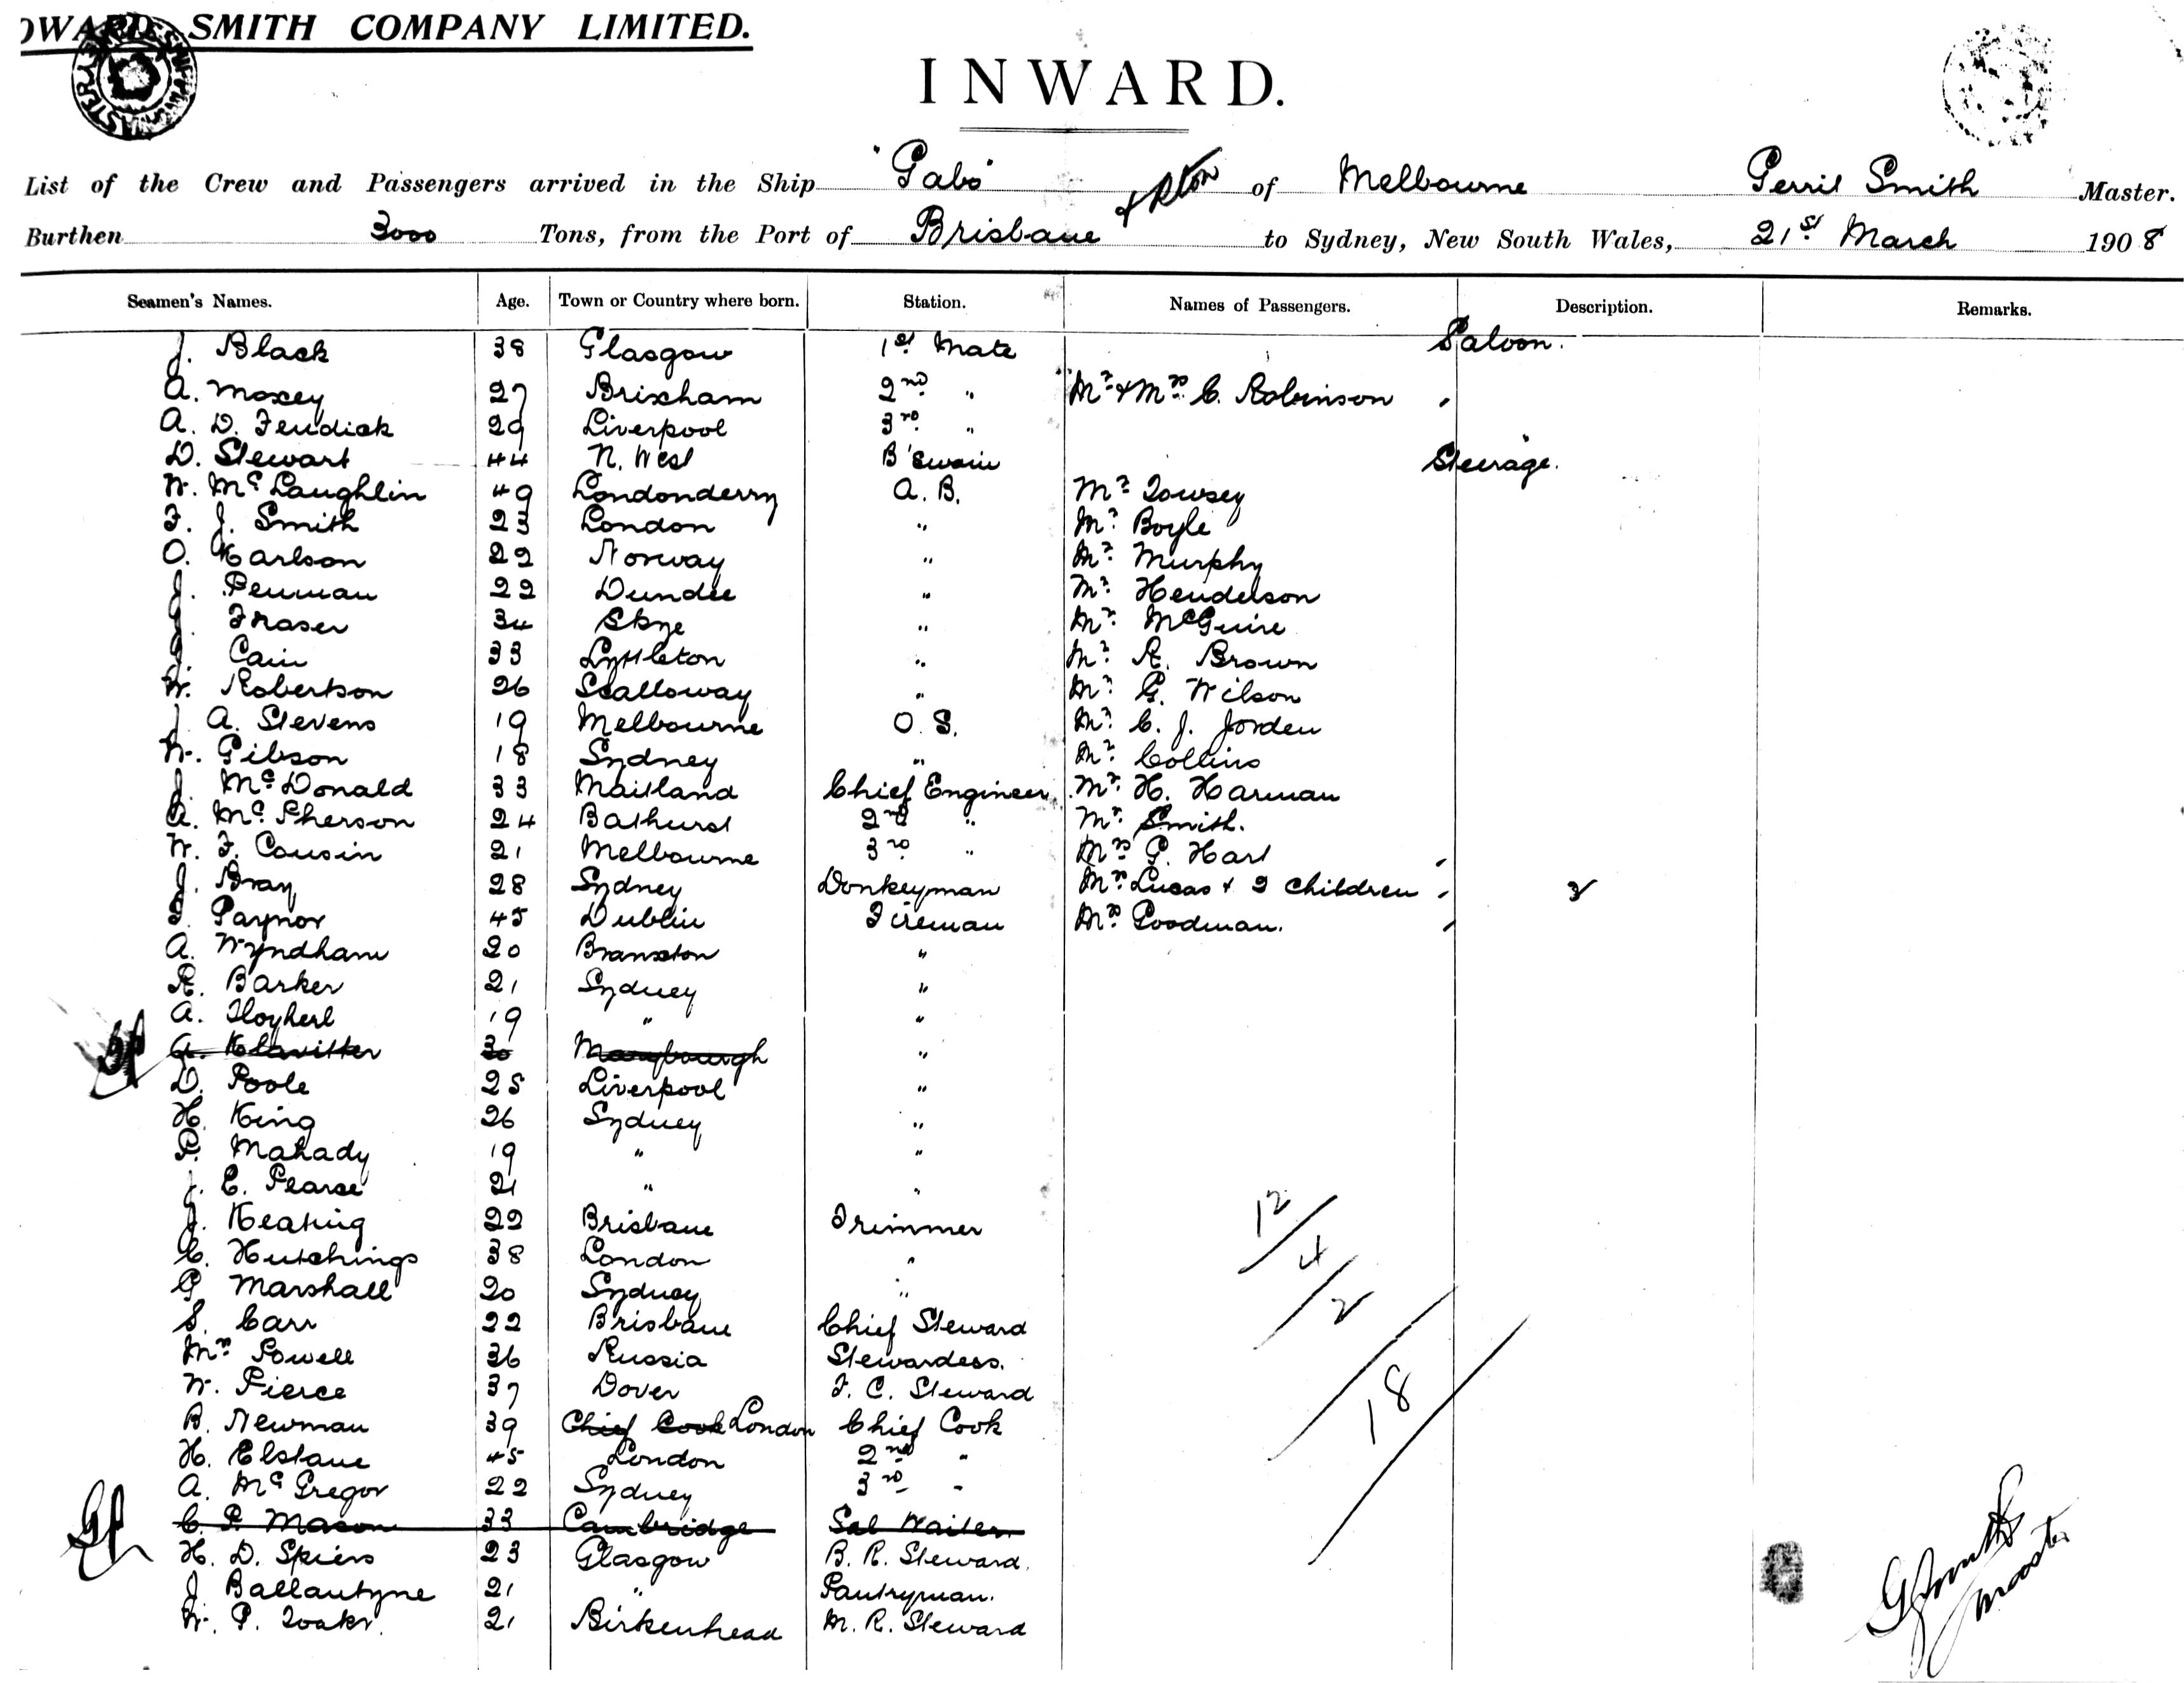 OWARD SMITH COMPANY LIMITED.
INWARD.
List of the Crew and Passengers arrived in the Ship "Gabo" of Melbourne Gerril Smith Master.
Burthen 3000 Tons, from the Port of Brisbane to Sydney, New South Wales, 21st March 1908
Seamen's Names. Age. Town or Country where born. Station. Names of Passengers. Description. Remarks.
J. Black 38 Glasgow 1st Mate Saloon.
A. Moxey 27 Brixham 2nd " Mr & Mrs C. Robinson
A. D. Fendick 29 Liverpool 3rd "
D. Stewart 44 N. West B'swain Steerage.
W. McLaughlin 49 Londonderry A. B. Mr Towsey
F. J. Smith 23 London " Mr Boyle
O. Karlson 22 Norway " Mr Murphy
J. Penman 22 Dundee " Mr Henderson
J. Fraser 34 Skye " Mr McGuire
J. Cain 33 Lyttleton " Mr R. Brown
W. Robertson 26 Scalloway " Mr G. Wilson
J. A. Stevens 19 Melbourne O. S. Mr C. J. Jorden
W. Gibson 18 Sydney " Mr Collins
J. McDonald 33 Maitland Chief Engineer Mr H. Harman
A. McPherson 24 Bathurst 2nd " Mr Smith.
W. F. Cousin 21 Melbourne 3rd " Mrs P. Hart
J. Bray 28 Sydney Donkeyman Mrs Lucas & 2 Children 2
Paynor 45 Dublin Fireman Mrs Goodman.
A. Wyndham 20 Branxton "
R. Barker 21 Sydney "
A. 19 " "
A. Klavitter 30 Maryborough "
D. Poole 25 Liverpool "
H. King 26 Sydney "
P. Mahady 19 " "
J. E. Pearse 21 " "
J. Keating 22 Brisbane Trimmer
C. Hutchings 38 London "
G. Marshall 20 Sydney "
S. Carr 22 Brisbane Chief Steward
Mrs Powell 36 Russia Stewardess.
W. Pierce 37 Dover F. C. Steward
B. Newman 39 Chief Cook London Chief Cook
H. Elstane 45 London 2nd "
A. McGregor 22 Sydney 3rd "
C. P. Mason 33 Cambridge Sal Waiter.
H. D. Spiers 23 Glasgow B. R. Steward.
J. Ballantyne 21 " Pantryman.
W. P. 21 Birkenhead M. R. Steward
12
4
2
18
G Smith
Master